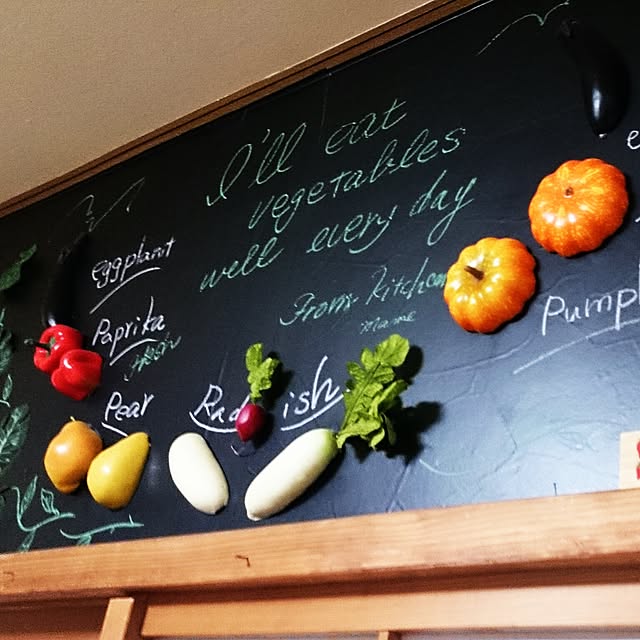 I'll eat
vegetables
well every day
From kitchen
eggplant
Paprika
fresh
Pear
Radish
Pump